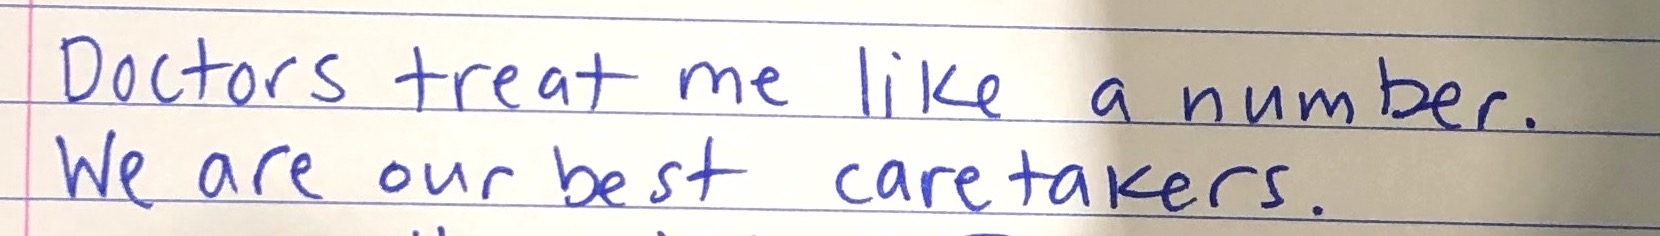 Doctors treat me like a number.
We are our best caretakers.